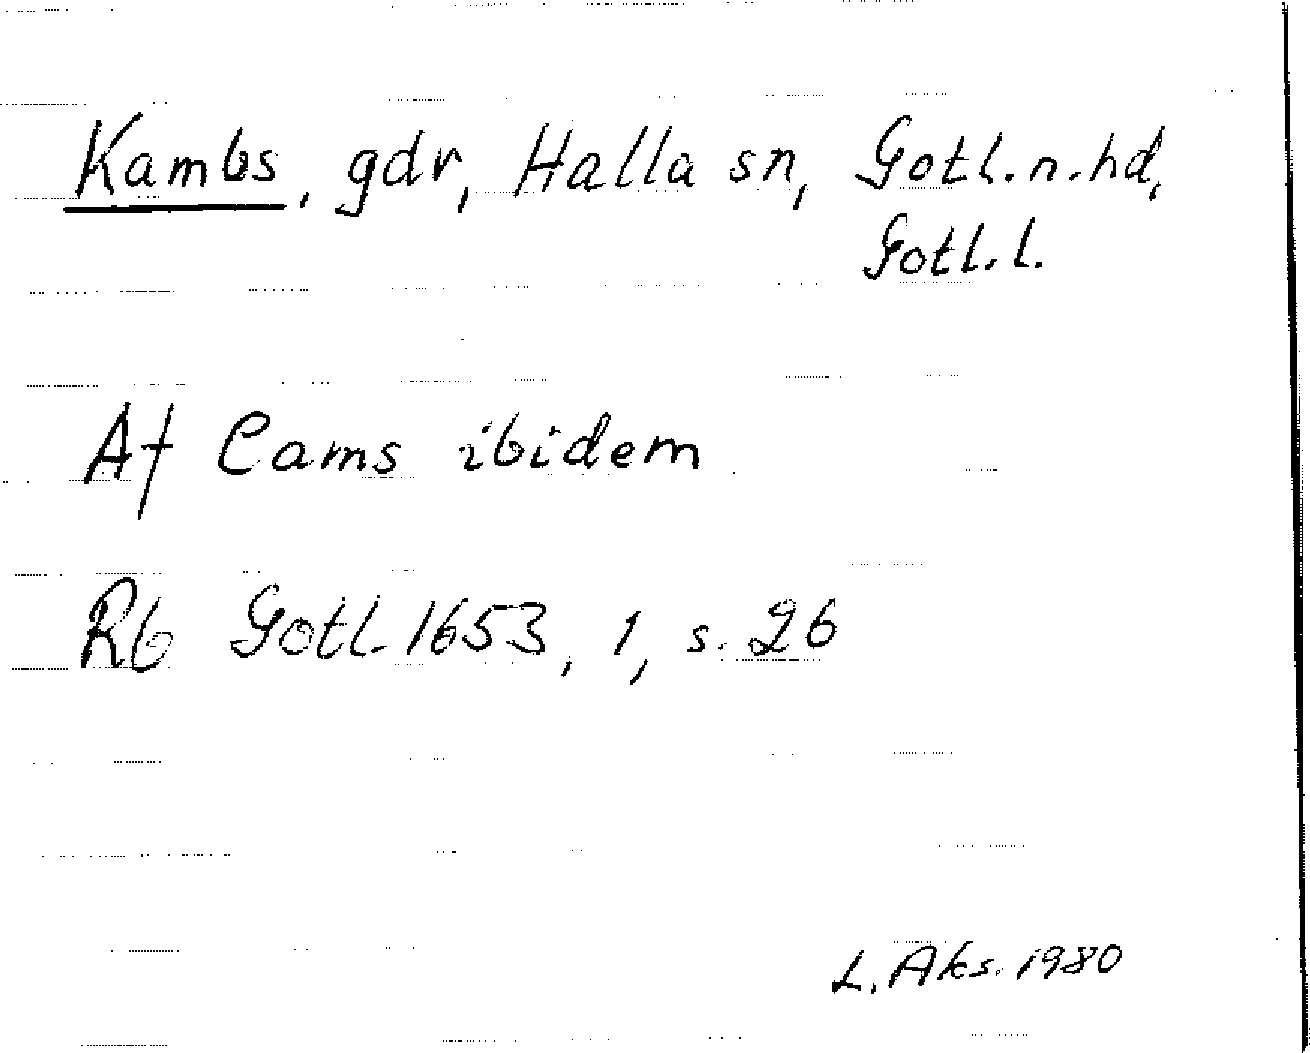 Kambs, gdr, Halla sn, Gotl.n.hd,
Gotl.l.
Af Cams ibidem
Rb Gotl. 1653, 1, s. 26
L. Aks. 1980